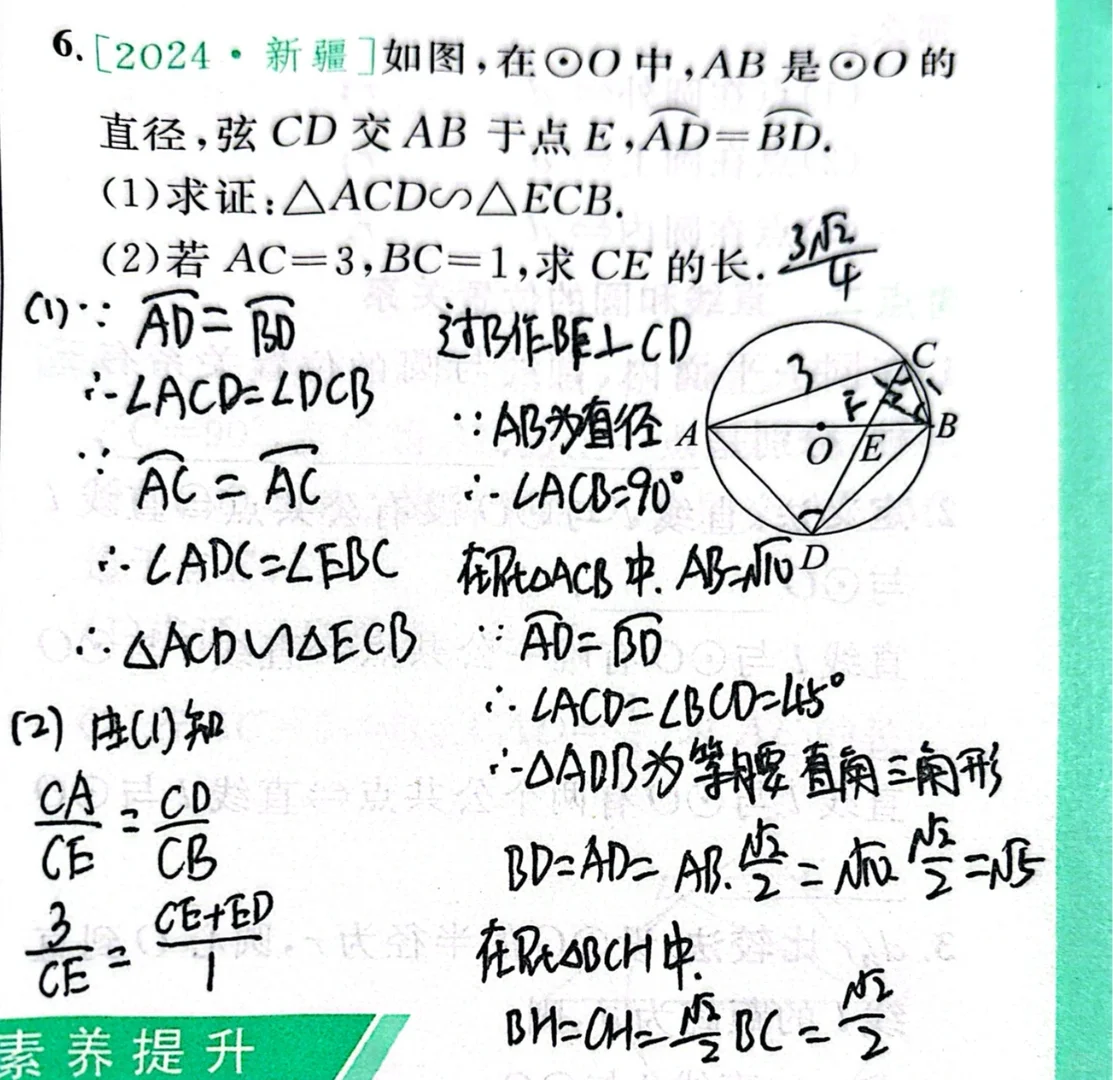 6.[2024·新疆]如图,在⊙O中,AB是⊙O的
直径,弦CD交AB于点E,A͡D=B͡D.
(1)求证:△ACD∽△ECB.
(2)若AC=3,BC=1,求CE的长. 3√2/4
(1)∵ A͡D=B͡D
∴∠ACD=∠DCB
∵ A͡C=A͡C
∴∠ADC=∠EBC
∴△ACD∽△ECB
(2) 由(1)知
CA/CE=CD/CB
3/CE=(CE+ED)/1
过B作BE⊥CD
∵AB为直径
∴∠ACB=90°
在Rt△ACB中.AB=√10
∵A͡D=B͡D
∴∠ACD=∠BCD=45°
∴△ADB为等腰直角三角形
BD=AD=AB·√2/2=√10·√2/2=√5
在Rt△BCH中.
BH=CH=√2/2BC=√2/2
A
B
C
D
O
E
3
1
素养提升